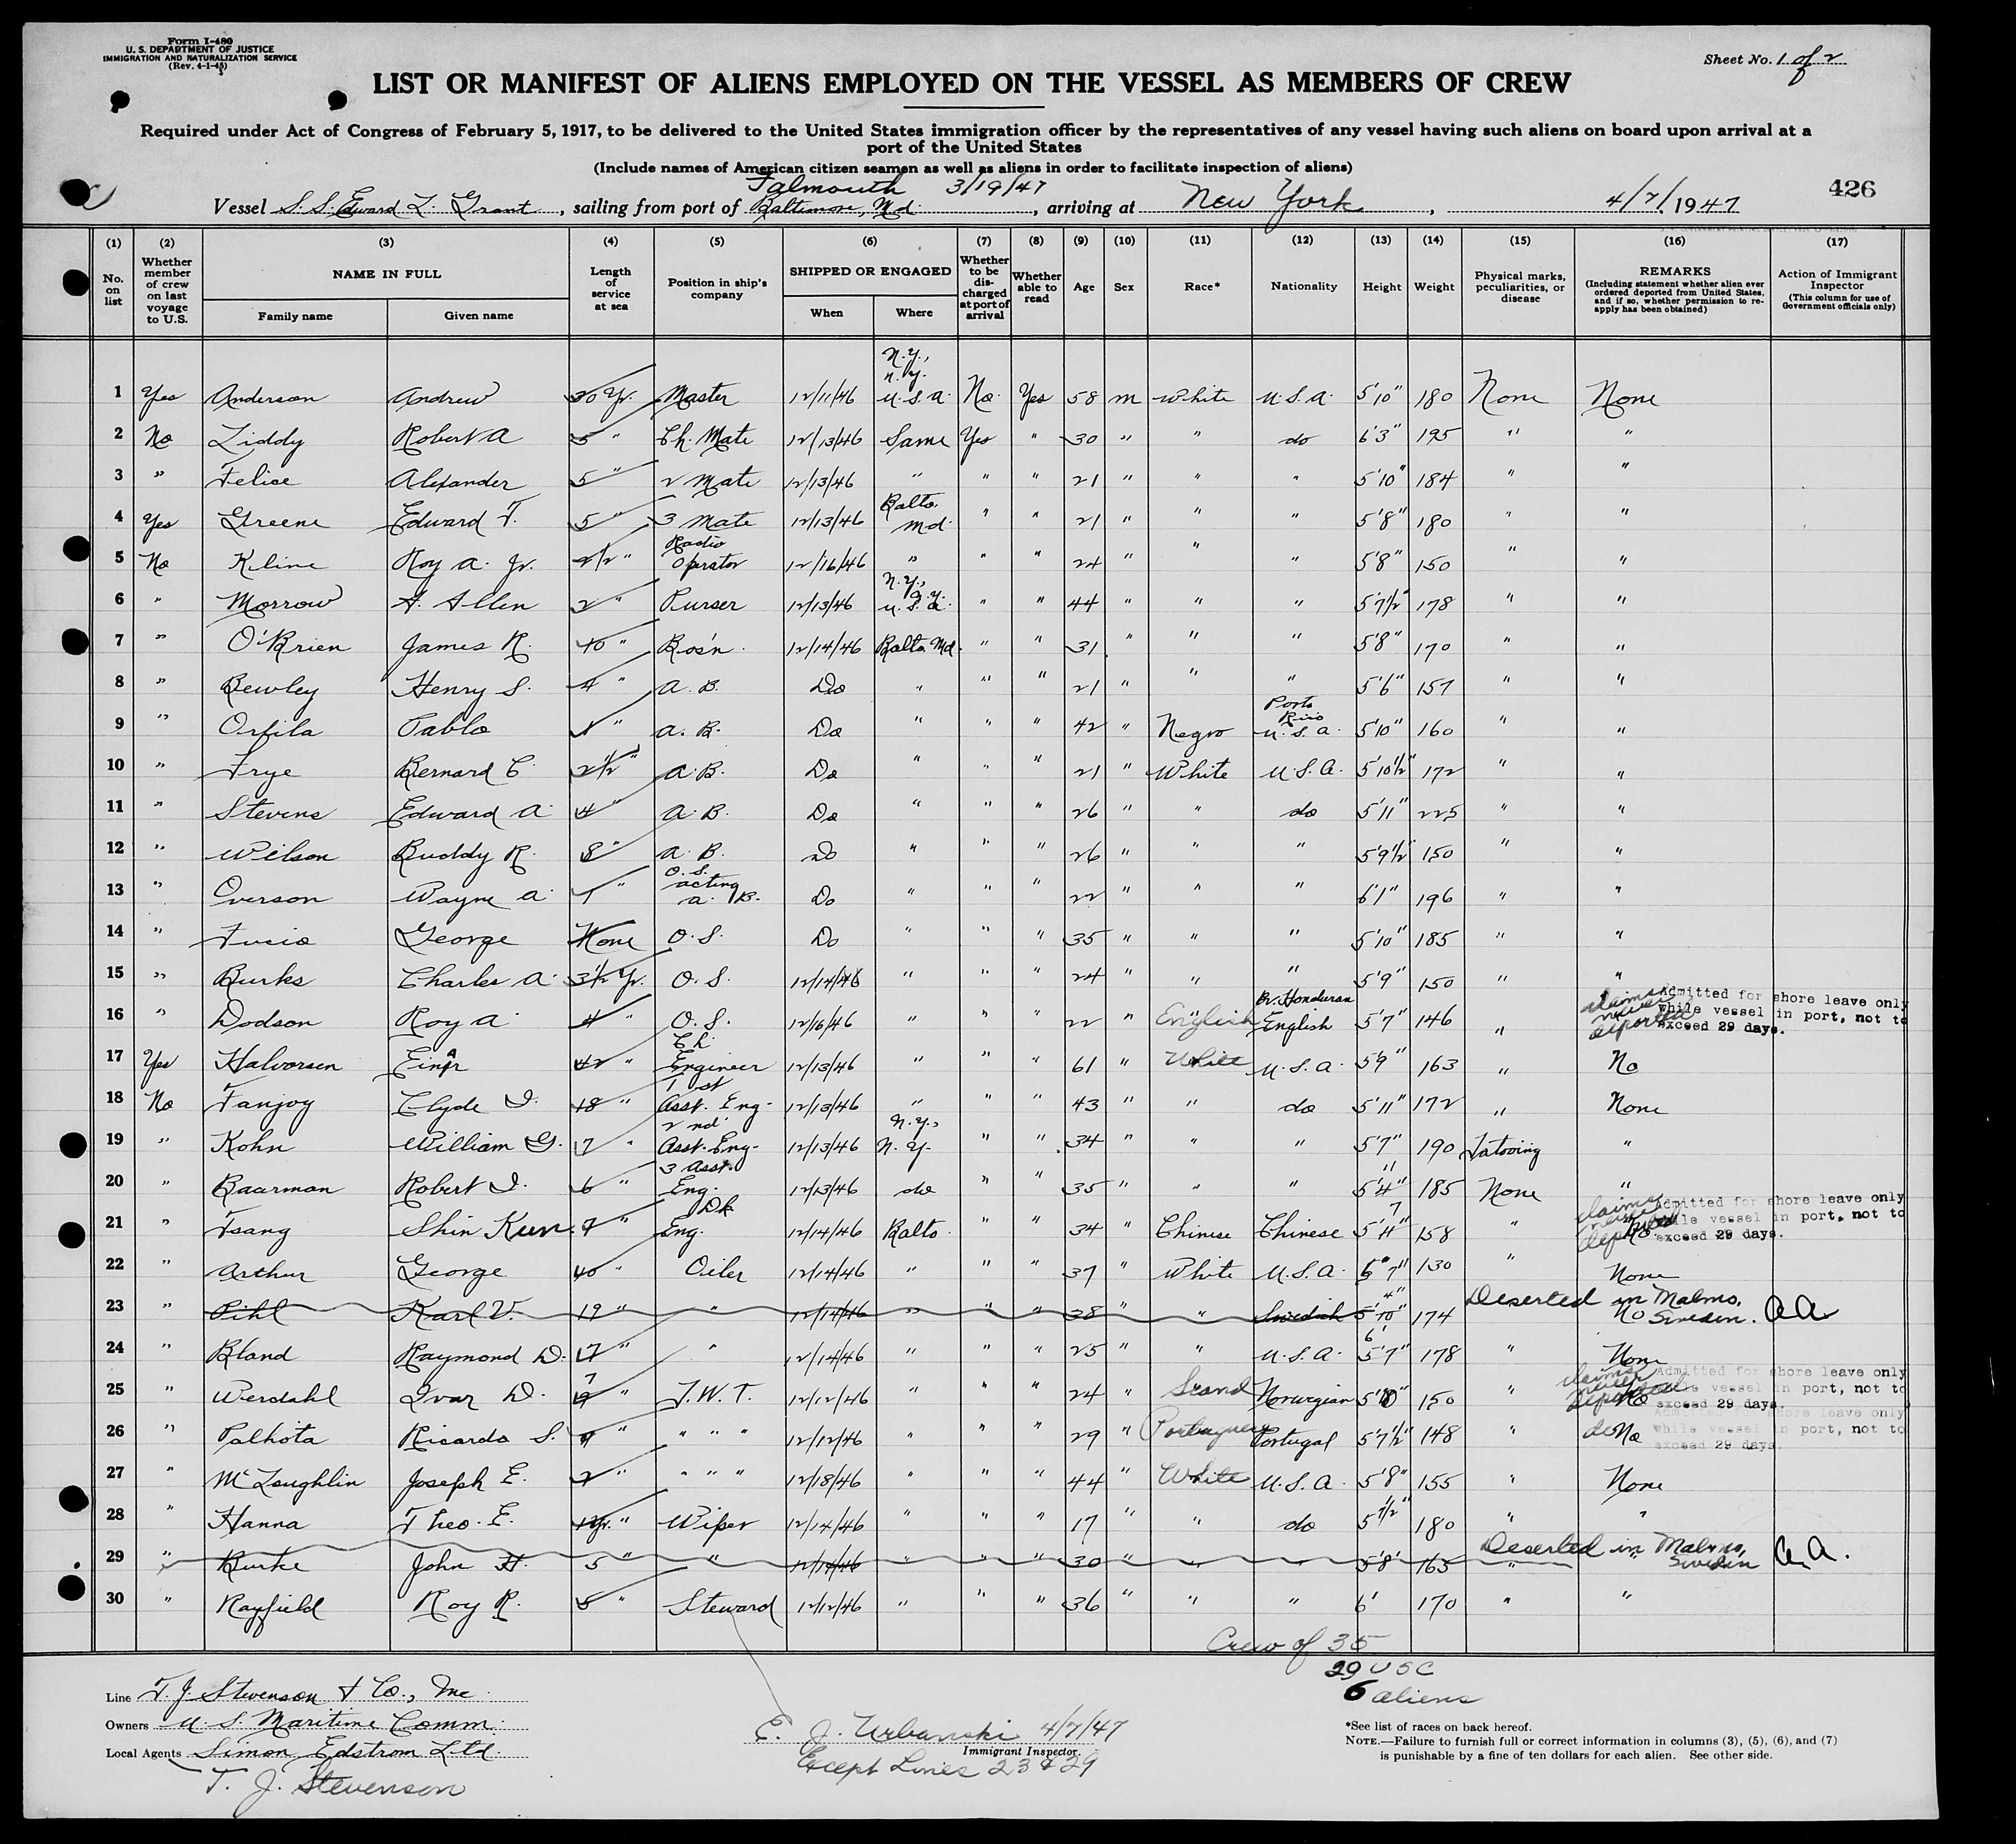 Form I-480
U. S. DEPARTMENT OF JUSTICE
IMMIGRATION AND NATURALIZATION SERVICE
(Rev. 4-1-45)
Sheet No. 1 of 2
LIST OR MANIFEST OF ALIENS EMPLOYED ON THE VESSEL AS MEMBERS OF CREW
Required under Act of Congress of February 5, 1917, to be delivered to the United States immigration officer by the representatives of any vessel having such aliens on board upon arrival at a
port of the United States
(Include names of American citizen seamen as well as aliens in order to facilitate inspection of aliens)
Falmouth 3/19/47
426
Vessel S.S. Edward L. Grant, sailing from port of Baltimore, Md., arriving at New York, 4/7/1947
(1) (2) (3) (4) (5) (6) (7) (8) (9) (10) (11) (12) (13) (14) (15) (16) (17)
No. on list
Whether member of crew on last voyage to U.S.
NAME IN FULL
Family name
Given name
Length of service at sea
Position in ship's company
SHIPPED OR ENGAGED
When
Where
Whether to be discharged at port of arrival
Whether able to read
Age
Sex
Race*
Nationality
Height
Weight
Physical marks, peculiarities, or disease
REMARKS
(Including statement whether alien ever ordered deported from United States, and if so, whether permission to reapply has been obtained)
Action of Immigrant Inspector
(This column for use of Government officials only)
1 Yes Anderson Andrew 30 Yr. Master 12/11/46 N.Y., N.Y. U.S.A. No Yes 58 m White U.S.A. 5'10" 180 None None
2 No Liddy Robert A 5 " Ch. Mate 12/13/46 Same Yes " 30 " " do 6'3" 195 " "
3 " Felice Alexander 5 " 2 Mate 12/13/46 " " " 21 " " " 5'10" 184 " "
4 Yes Greene Edward F. 5 " 3 Mate 12/13/46 Balto. Md. " " 21 " " " 5'8" 180 " "
5 No Kline Roy A. Jr. 2½ " Radio Operator 12/16/46 " " " 24 " " " 5'8" 150 " "
6 " Morrow A. Allen 2 " Purser 12/13/46 N.Y., N.Y. U.S.A. " " 44 " " " 5'7½" 178 " "
7 " O'Brien James R. 10 " Bos'n. 12/14/46 Balto Md. " " 31 " " " 5'8" 170 " "
8 " Bewley Henry S. 4 " A.B. Do " " " 21 " " " 5'6" 157 " "
9 " Orfila Pablo 1 " A.B. Do " " " 42 " Negro Porto Rico U.S.A. 5'10" 160 " "
10 " Frye Bernard C. 2½ " A.B. Do " " " 21 " White U.S.A. 5'10½" 172 " "
11 " Stevens Edward A. 4 " A.B. Do " " " 26 " " do 5'11" 225 " "
12 " Wilson Buddy R. 8 " A.B. Do " " " 26 " " " 5'9½" 150 " "
13 " Overson Wayne A 1 " O.S. acting A.B. Do " " " 22 " " " 6'1" 196 " "
14 " Fucio George None O.S. Do " " " 35 " " " 5'10" 185 " "
15 " Burks Charles A. 3½ Yr. O.S. 12/14/46 " " " 24 " " " 5'9" 150 " "
16 " Dodson Roy A 4 " O.S. 12/16/46 " " " 22 " English Br. Honduran English 5'7" 146 " claims never deported Admitted for shore leave only while vessel in port, not to exceed 29 days.
17 Yes Halvorsen Einar 42 " Ch Engineer 12/13/46 " " " 61 " White U.S.A. 5'9" 163 " No
18 No Fanjoy Clyde I. 18 " 1st Asst. Eng. 12/13/46 " " " 43 " " do 5'11" 172 " None
19 " Kohn William G. 17 " 2nd Asst. Eng. 12/13/46 N.Y., N.Y. " " 34 " " " 5'7" 190 Tatooing "
20 " Baarman Robert I. 6 " 3 Asst. Eng. 12/13/46 do " " 35 " " " 5'11" 185 None "
21 " Tsang Shin Kun 7 " Dk Eng. 12/14/46 Balto. " " 34 " Chinese Chinese 5'7" 158 " claims never deported No Admitted for shore leave only while vessel in port, not to exceed 29 days.
22 " Arthur George 10 " Oiler 12/14/46 " " " 37 " White U.S.A. 5'7" 130 " None
23 " Pihl Karl V. 19 " " 12/14/46 " " " 38 " " Swedish 5'10" 174 Deserted in Malmo, Sweden. No AA
24 " Bland Raymond D. 17 " " 12/14/46 " " " 25 " " U.S.A. 6' 178 " None
25 " Werdahl Ivar D. 7 " F.W.T. 12/12/46 " " " 24 " Scand Norwegian 5'8" 150 " claims never deported No Admitted for shore leave only while vessel in port, not to exceed 29 days.
26 " Palhota Ricardo S. 9 " " " " 12/12/46 " " " 29 " Portuguese Portugal 5'7½" 148 " do No Admitted for shore leave only while vessel in port, not to exceed 29 days.
27 " McLoughlin Joseph E. 2 " " " " 12/18/46 " " " 44 " White U.S.A. 5'8" 155 " None
28 " Hanna Theo. E. 1 Yr. " Wiper 12/14/46 " " " 17 " " do 5'7½" 180 " "
29 " Burke John H. 5 " " 12/14/46 " " " 30 " " " 5'8" 165 " Deserted in Malmo, Sweden A.A.
30 " Rayfield Roy R. 5 " Steward 12/12/46 " " " 36 " " " 6' 170 " "
Crew of 35
29 USC
6 aliens
Line T. J. Stevenson & Co., Inc.
Owners U. S. Maritime Comm.
Local Agents Simon Edstrom Ltd.
T. J. Stevenson
E. J. Urbanski 4/7/47
Immigrant Inspector.
Except Lines 23 & 29
*See list of races on back hereof.
NOTE.—Failure to furnish full or correct information in columns (3), (5), (6), and (7)
is punishable by a fine of ten dollars for each alien. See other side.